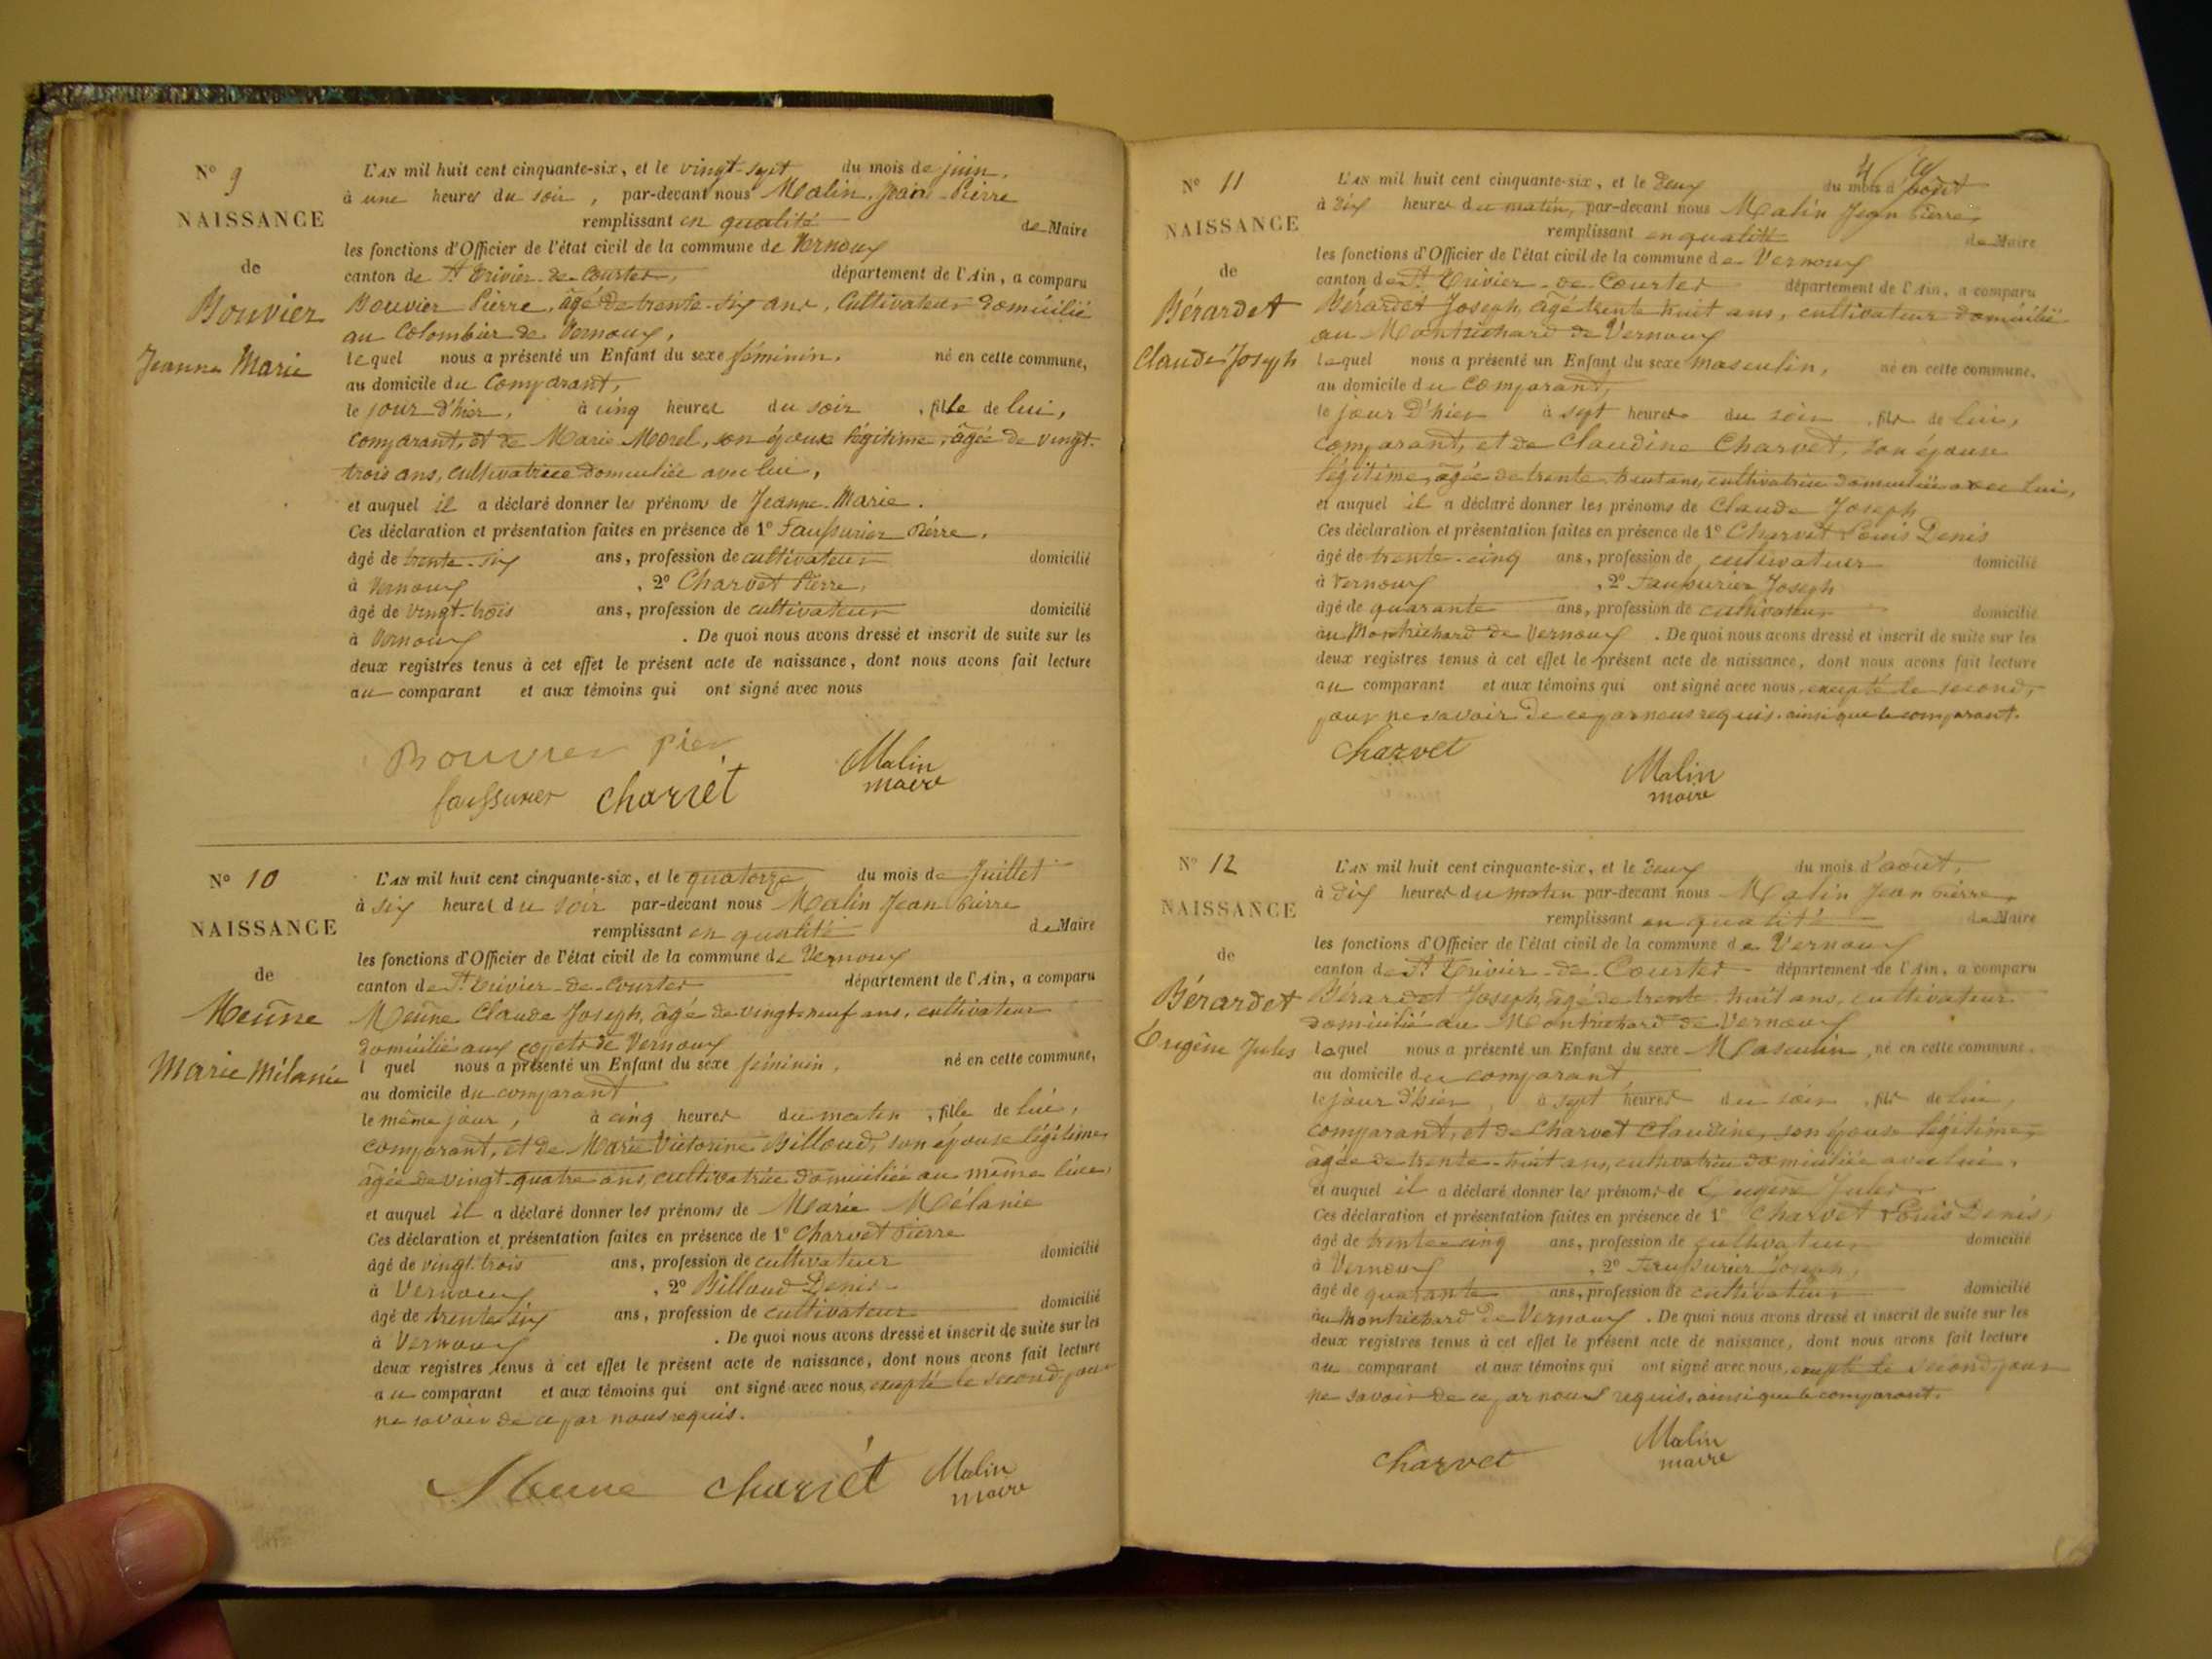 N° 9
NAISSANCE
de
Bouvier
Jeanne Marie
L'AN mil huit cent cinquante-six, et le vingt-sept du mois de juin,
à une heures du soir, par-devant nous Malin, Jean-Pierre
remplissant en qualité de Maire
les fonctions d'Officier de l'état civil de la commune de Vernoux
canton de St Trivier-de-Courtes, département de l'Ain, a comparu
Bouvier Pierre, âgé de trente-six ans, Cultivateur domicilié
au Colombier de Vernoux,
lequel nous a présenté un Enfant du sexe féminin, né en cette commune,
au domicile du Comparant,
le jour d'hier, à cinq heures du soir, fille de lui,
comparant, et de Marie Morel, son épouse légitime, âgée de vingt-
trois ans, cultivatrice domiciliée avec lui,
et auquel il a déclaré donner les prénoms de Jeanne Marie.
Ces déclaration et présentation faites en présence de 1° Faussurier Pierre,
âgé de trente-six ans, profession de cultivateur domicilié
à Vernoux, 2° Charvet Pierre,
âgé de vingt-trois ans, profession de cultivateur domicilié
à Vernoux. De quoi nous avons dressé et inscrit de suite sur les
deux registres tenus à cet effet le présent acte de naissance, dont nous avons fait lecture
au comparant et aux témoins qui ont signé avec nous
Bouvier pier
faussurier charvet Malin
maire
N° 10
NAISSANCE
de
Meune
Marie Mélanie
L'AN mil huit cent cinquante-six, et le quatorze du mois de Juillet
à six heures du soir par-devant nous Malin Jean Pierre
remplissant en qualité de Maire
les fonctions d'Officier de l'état civil de la commune de Vernoux
canton de St Trivier-de-Courtes département de l'Ain, a comparu
Meune Claude Joseph, âgé de vingt-neuf ans, cultivateur
domicilié aux de Vernoux
l quel nous a présenté un Enfant du sexe féminin, né en cette commune,
au domicile du comparant
le même jour, à cinq heures du matin, fille de lui,
comparant, et de Marie Victorine Billoud, son épouse légitime
âgée de vingt-quatre ans, cultivatrice domiciliée au même lieu,
et auquel il a déclaré donner les prénoms de Marie Mélanie
Ces déclaration et présentation faites en présence de 1° Charvet Pierre
âgé de vingt-trois ans, profession de cultivateur domicilié
à Vernoux, 2° Billoud Denis
âgé de trente six ans, profession de cultivateur domicilié
à Vernoux. De quoi nous avons dressé et inscrit de suite sur les
deux registres tenus à cet effet le présent acte de naissance, dont nous avons fait lecture
au comparant et aux témoins qui ont signé avec nous, excepté le second, pour
ne savoir de ce par nous requis.
Meune charvet Malin
maire
N° 11
NAISSANCE
de
Bérardet
Claude Joseph
4
L'AN mil huit cent cinquante-six, et le deux du mois d'août
à dix heures du matin, par-devant nous Malin Jean Pierre,
remplissant en qualité de Maire
les fonctions d'Officier de l'état civil de la commune de Vernoux
canton de St Trivier-de-Courtes département de l'Ain, a comparu
Bérardet Joseph, âgé trente huit ans, cultivateur domicilié
au Montrichard de Vernoux
lequel nous a présenté un Enfant du sexe masculin, né en cette commune,
au domicile du comparant,
le jour d'hier à sept heures du soir, fils de lui,
comparant, et de Claudine Charvet, son épouse
légitime, âgée de trente huit ans, cultivatrice domiciliée avec lui,
et auquel il a déclaré donner les prénoms de Claude Joseph
Ces déclaration et présentation faites en présence de 1° Charvet Louis Denis
âgé de trente-cinq ans, profession de cultivateur domicilié
à Vernoux, 2° Faussurier Joseph
âgé de quarante ans, profession de cultivateur domicilié
au Montrichard de Vernoux. De quoi nous avons dressé et inscrit de suite sur les
deux registres tenus à cet effet le présent acte de naissance, dont nous avons fait lecture
au comparant et aux témoins qui ont signé avec nous, excepté le second,
pour ne savoir de ce par nous requis, ainsi que le comparant.
Charvet Malin
maire
N° 12
NAISSANCE
de
Bérardet
Eugène Jules
L'AN mil huit cent cinquante-six, et le deux du mois d'août,
à dix heures du matin par-devant nous Malin Jean Pierre,
remplissant en qualité de Maire
les fonctions d'Officier de l'état civil de la commune de Vernoux
canton de St Trivier-de-Courtes département de l'Ain, a comparu
Bérardet Joseph, âgé de trente-huit ans, cultivateur
domicilié au Montrichard de Vernoux
lequel nous a présenté un Enfant du sexe Masculin, né en cette commune,
au domicile du comparant
le jour d'hier, à sept heures du soir, fils de lui,
comparant, et de Charvet Claudine, son épouse légitime,
âgée de trente-huit ans, cultivatrice domiciliée avec lui,
et auquel il a déclaré donner les prénoms de Eugène Jules
Ces déclaration et présentation faites en présence de 1° Charvet Louis Denis,
âgé de trente-cinq ans, profession de cultivateur domicilié
à Vernoux, 2° Faussurier Joseph,
âgé de quarante ans, profession de cultivateur domicilié
au Montrichard de Vernoux. De quoi nous avons dressé et inscrit de suite sur les
deux registres tenus à cet effet le présent acte de naissance, dont nous avons fait lecture
au comparant et aux témoins qui ont signé avec nous, excepté le second, pour
ne savoir de ce par nous requis, ainsi que le comparant.
Charvet Malin
maire